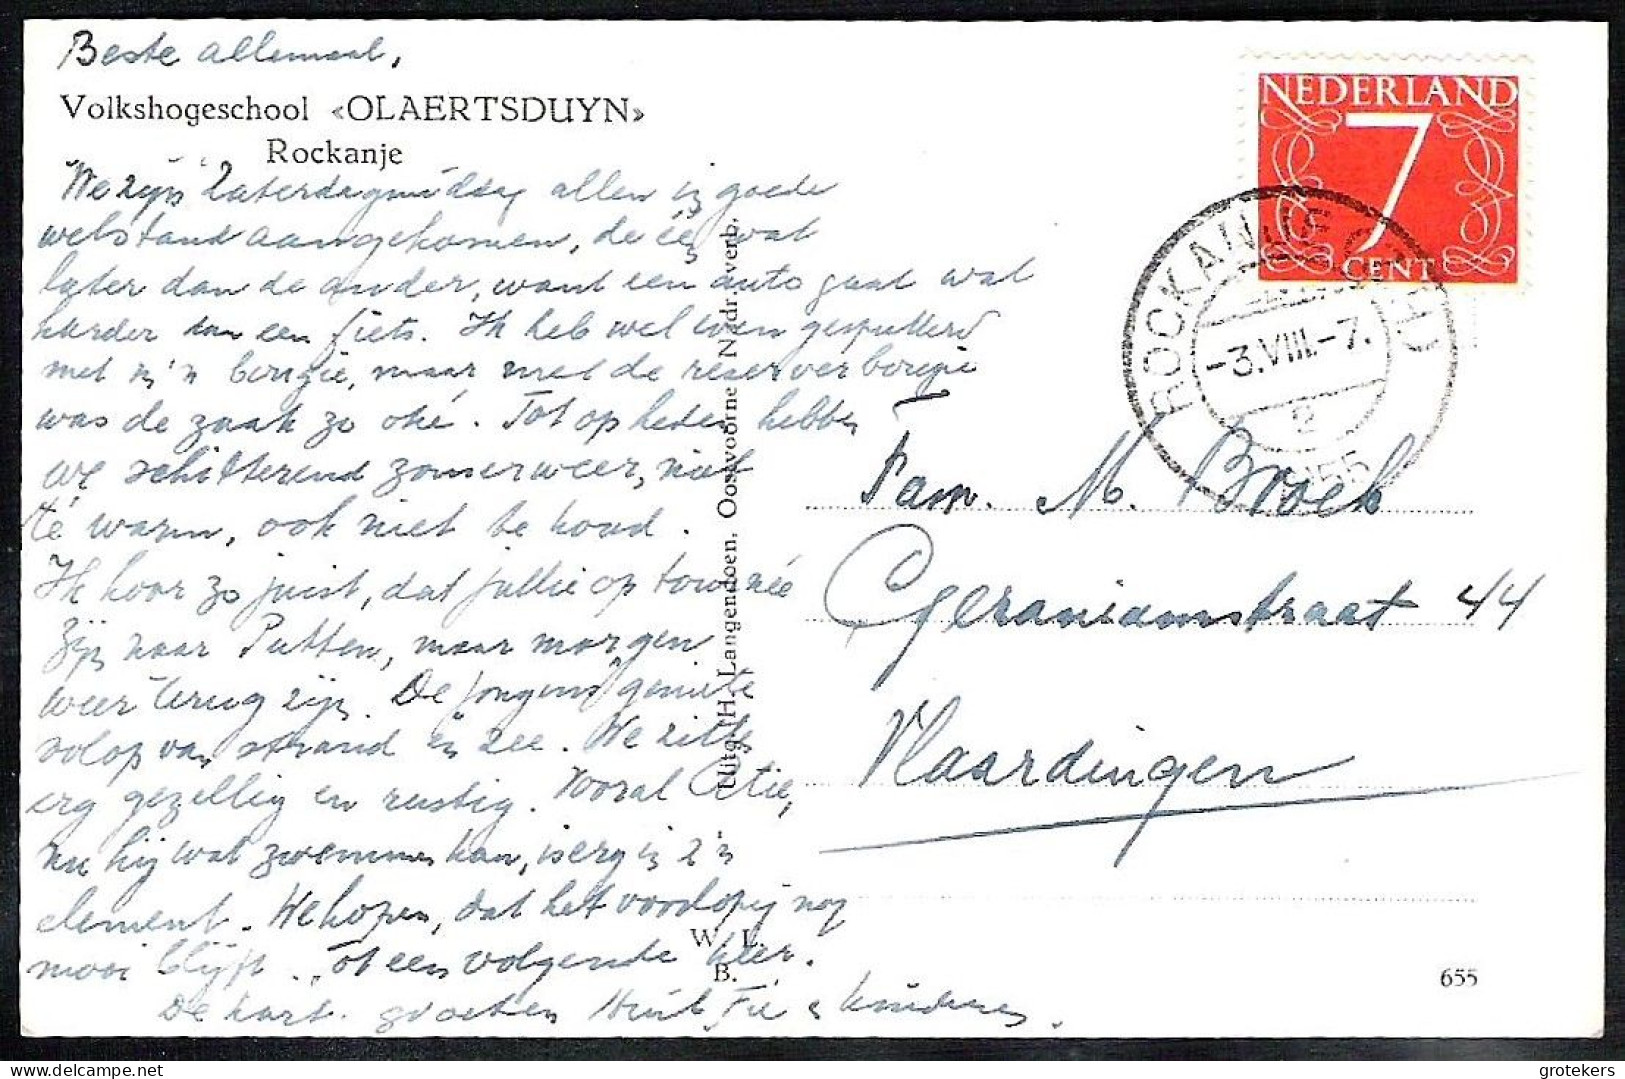 Beste allemaal,
Volkshogeschool «OLAERTSDUYN»
Rockanje
We zijn Zaterdagmiddag allen in goede
welstand aangekomen, de één wat
later dan de ander, want een auto gaat wat
harder dan een fiets. Ik heb wel even gesputterd
met m'n bougie, maar met de reserverbougie
was de zaak zo oké. Tot op heden hebben
we schitterend zomerweer, niet
té warm, ook niet te koud.
Ik hoor zo juist, dat jullie op tournée
zijn naar Putten, maar morgen
weer terug zijn. De jongens genieten
volop van strand en zee. We zitten
erg gezellig en rustig. Vooral Aetie,
nu hij wat zwemmen kan, is erg in z'n
element. We hopen, dat het voorlopig nog
mooi blijft. Tot een volgende keer.
De hart. groeten Huib, Fie en kinderen.
Uitg. H. Langendoen, Oostvoorne Nadr. verb.
W. L.
B.
NEDERLAND
7
CENT
ROCKANJE
-3.VIII.-7.
2
1955
Fam. M. Broek
Geraniumstraat 44
Vlaardingen
655
grotekers